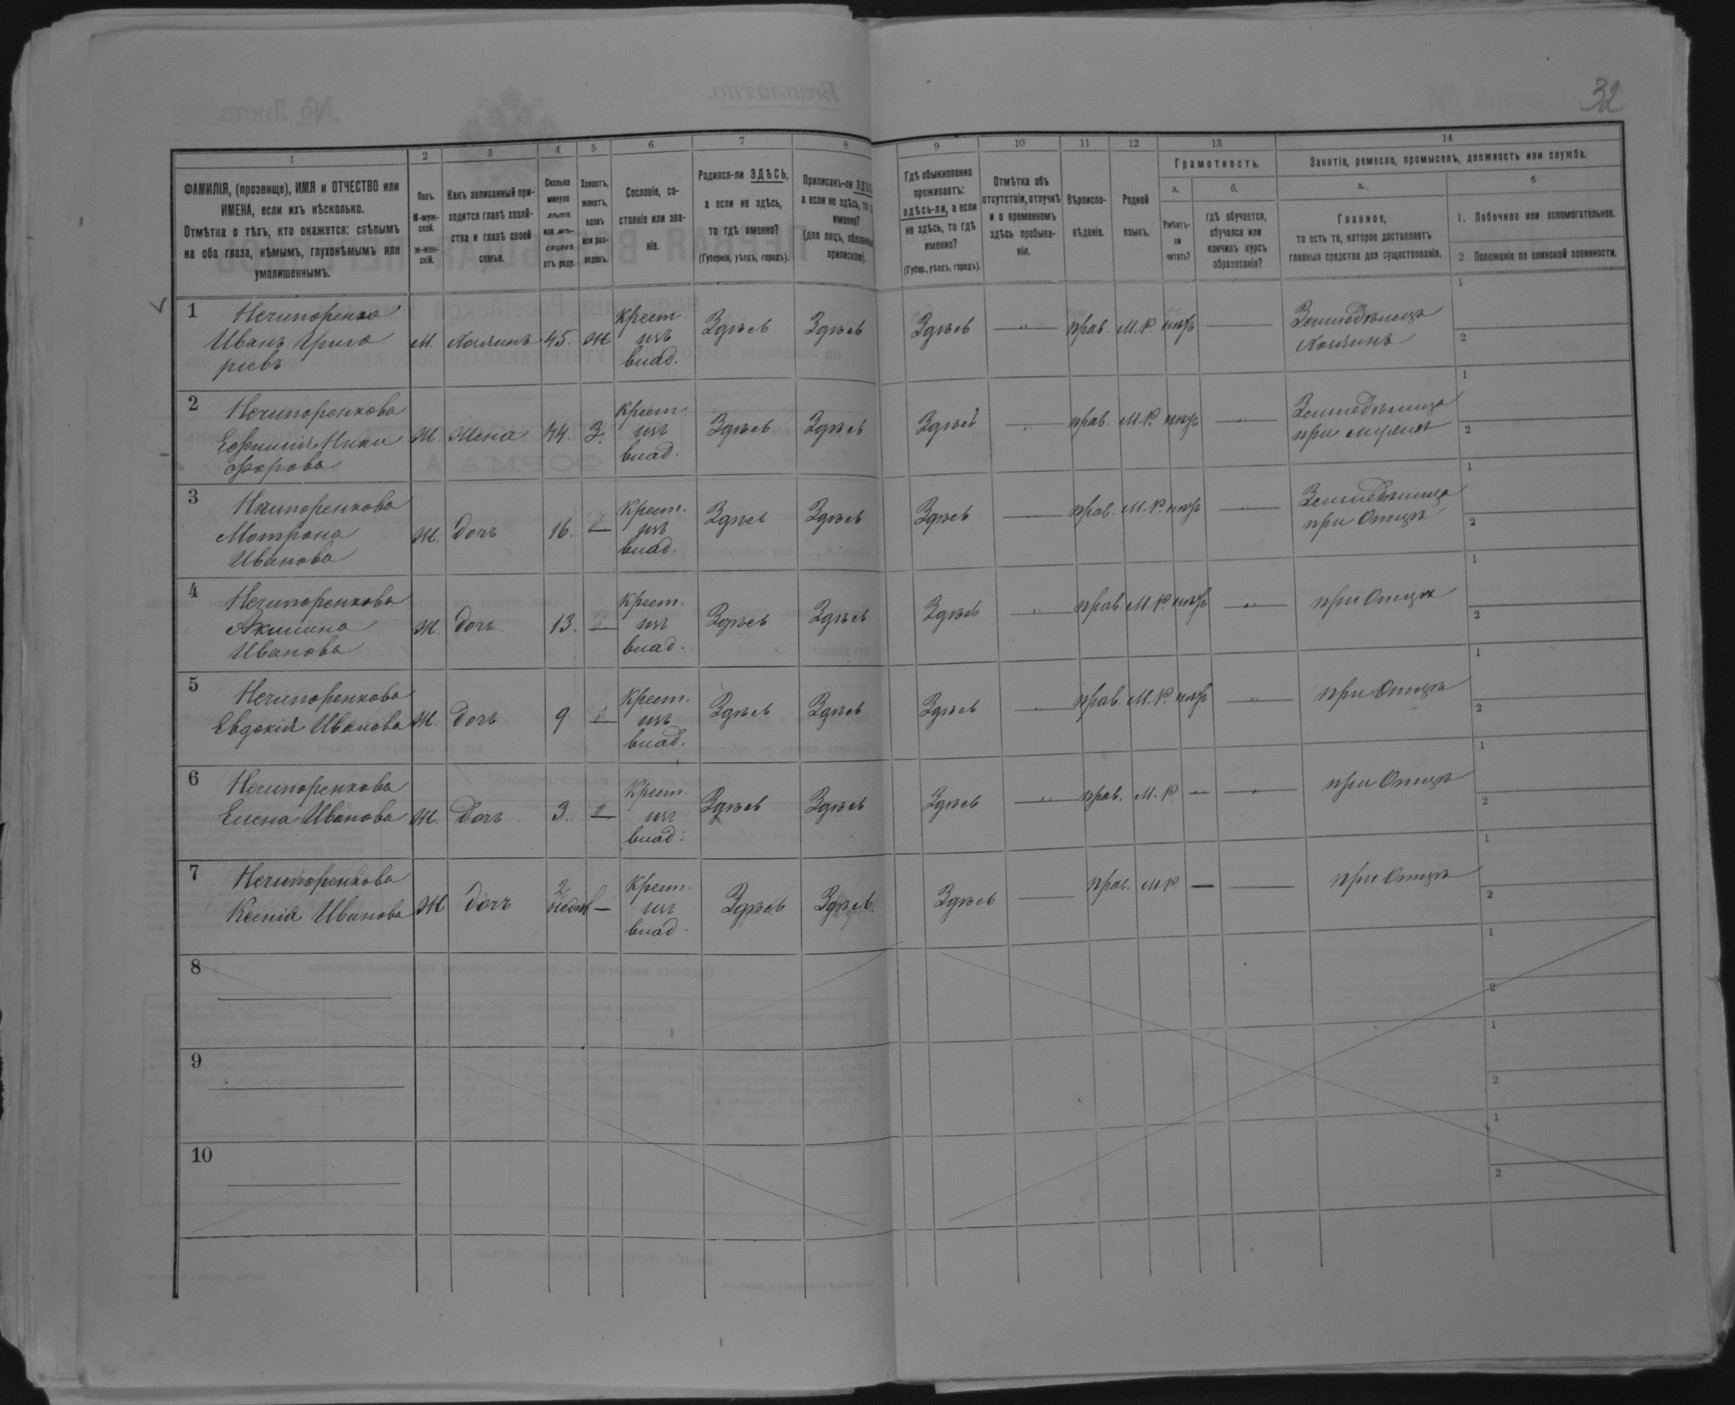 32
1 2 3 4 5 6 7 8 9 10 11 12 13 14
ФАМИЛІЯ, (прозвище), ИМЯ и ОТЧЕСТВО или
ИМЕНА, если ихъ нѣсколько.
Отмѣтка о тѣхъ, кто окажется: слѣпымъ
на оба глаза, нѣмымъ, глухонѣмымъ или
умалишеннымъ.
Полъ.
М-муж-
ской.
Ж-жен-
скій.
Какъ записанный при-
ходится главѣ хозяй-
ства и главѣ своей
семьи.
Сколько
минуло
лѣтъ
или мѣ-
сяцевъ
отъ роду.
Холостъ,
женатъ,
вдовъ
или раз-
веденъ.
Сословіе, со-
стояніе или зва-
ніе.
Родился-ли ЗДѢСЬ,
а если не здѣсь,
то гдѣ именно?
(Губернія, уѣздъ, городъ).
Приписанъ-ли
а если не здѣсь, то
именно?
(для лицъ,
припискою).
Гдѣ обыкновенно
проживаетъ:
здѣсь-ли, а если
не здѣсь, то гдѣ
именно?
(Губер., уѣздъ, городъ).
Отмѣтка объ
отсутствіи, отлучкѣ
и о временномъ
здѣсь пребыва-
ніи.
Вѣроиспо-
вѣданіе.
Родной
языкъ.
Грамотность.
а.
Умѣетъ-
ли
читать?
б.
гдѣ обучается,
обучался или
кончилъ курсъ
образованія?
Занятіе, ремесло, промыселъ, должность или служба.
а.
Главное,
то есть то, которое доставляетъ
главныя средства для существованія.
б
1. Побочное или вспомогательное.
2 Положеніе по воинской повинности.
1 Нечипоренко
Иванъ Григо
рьевъ
М. Хозяинъ 45. Ж
Крест.
изъ
влад.
Здѣсь Здѣсь Здѣсь — прав. М.Р. нѣтъ —
Земледѣлецъ
Хозяинъ
1
2
2 Нечипоренкова
Евфимія Ники
форова
Ж. Жена 44. З.
Крест.
изъ
влад.
Здѣсь Здѣсь Здѣсь — прав. М.Р. нѣтъ —
Земледѣлица
при мужѣ
1
2
3 Нечипоренкова
Мотрона
Иванова
Ж. Дочь 16. —
Крест.
изъ
влад.
Здѣсь Здѣсь Здѣсь — прав. М.Р. нѣтъ —
Земледѣлица
при Отцѣ
1
2
4 Нечипоренкова
Акилина
Иванова
Ж. Дочь 13. —
Крест.
изъ
влад.
Здѣсь Здѣсь Здѣсь — прав. М.Р. нѣтъ —
при Отцѣ
1
2
5 Нечипоренкова
Евдокія Иванова
Ж. Дочь 9 —
Крест.
изъ
влад.
Здѣсь Здѣсь Здѣсь — прав. М.Р. нѣтъ —
при Отцѣ
1
2
6 Нечипоренкова
Елена Иванова
Ж. Дочь 3. —
Крест.
изъ
влад.
Здѣсь Здѣсь Здѣсь — прав. М.Р. — —
при Отцѣ
1
2
7 Нечипоренкова
Ксенія Иванова
Ж Дочь 2
недѣл —
Крест.
изъ
влад.
Здѣсь Здѣсь Здѣсь — прав. М.Р — —
при Отцѣ
1
2
8
1
2
9
1
2
10
1
2